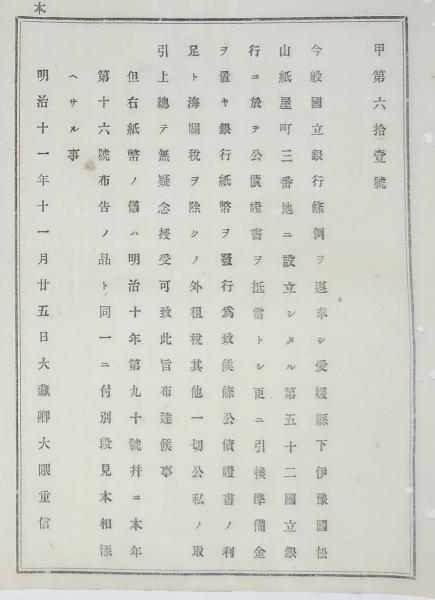 本
甲第六拾壹號
今般國立銀行條例ヲ遵奉シ愛媛縣下伊豫國松
山紙屋町三番地ニ設立シタル第五十二國立銀
行ニ於テ公債證書ヲ抵當トシ更ニ引換準備金
ヲ置キ銀行紙幣ヲ發行爲致候條公債證書ノ利
足ト海關稅ヲ除クノ外租稅其他一切公私ノ取
引上總テ無疑念授受可致此旨布達候事
但右紙幣ノ儀ハ明治十年第九十號幷ニ本年
第十六號布告ノ品ト同一ニ付別段見本相添
ヘサル事
明治十一年十一月廿五日大藏卿大隈重信